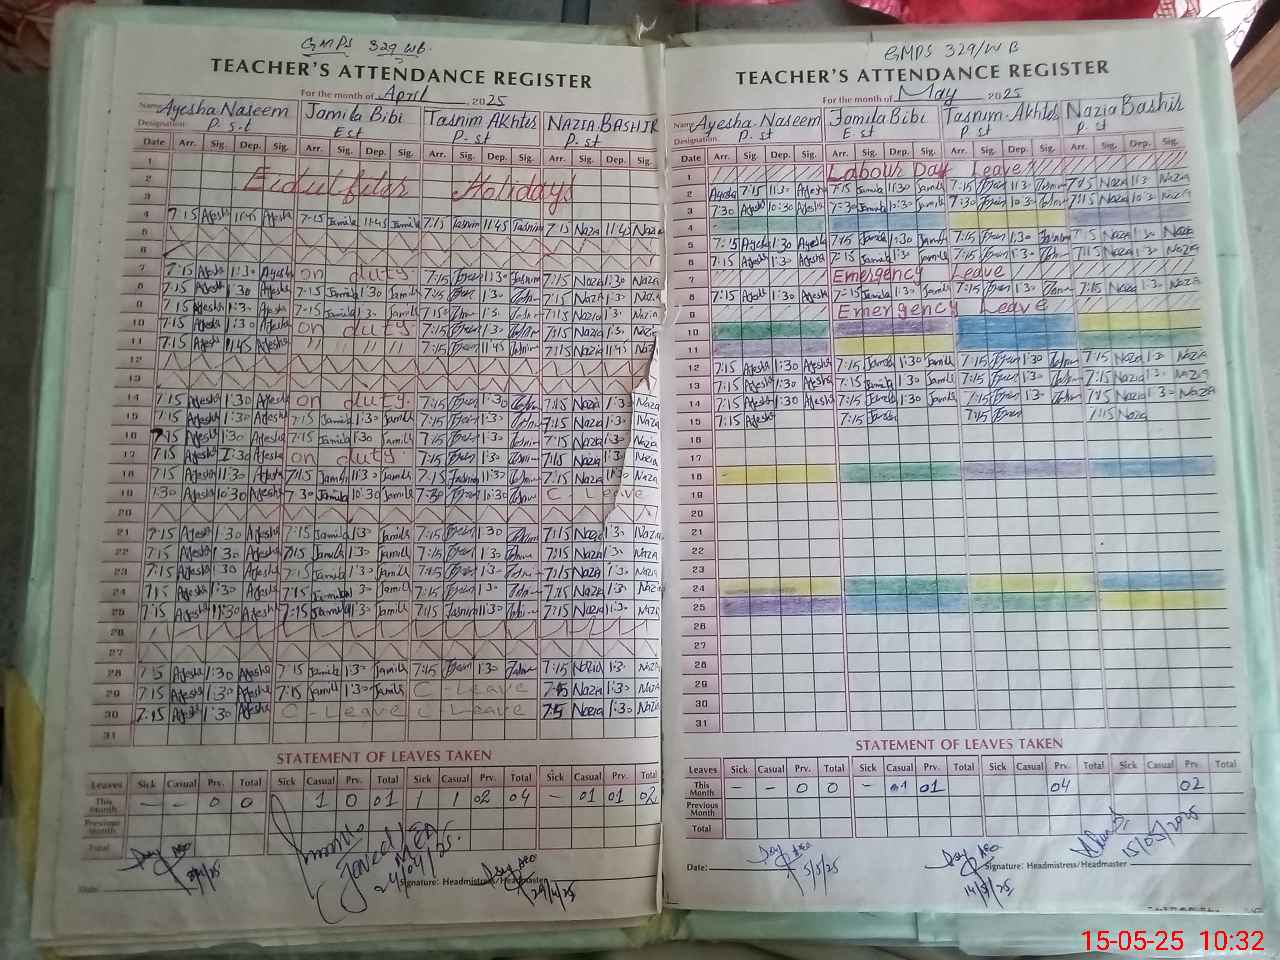 GMPS 329 WB.
TEACHER'S ATTENDANCE REGISTER
For the month of April, 2025
Name Ayesha Naseem Jamila Bibi Tasnim Akhter NAZIA BASHIR
Designation P.s.t Est P.st P.st
Date Arr. Sig. Dep. Sig. Arr. Sig. Dep. Sig. Arr. Sig. Dep. Sig. Arr. Sig. Dep. Sig.
1
2 Eidulfiter Holidays
3
4 7:15 Ayesha 11:45 Ayesha 7:15 Jamila 11:45 Jamila 7:15 Tasnim 11:45 Tasnim 7:15 Nazia 11:45 Nazia
5
6
7 7:15 Ayesha 1:30 Ayesha on duty. 7:15 1:30 Tasnim 7:15 Nazia 1:30 Nazia
8 7:15 Ayesha 1:30 Ayesha 7:15 Jamila 1:30 Jamila 7:15 1:30 7:15 Nazia 1:30 Nazia
9 7:15 Ayesha 1:30 Ayesha 7:15 Jamila 1:30 Jamila 7:15 1:30 7:15 Nazia 1:30 Nazia
10 7:15 Ayesha 1:30 Ayesha on duty. 7:15 1:30 7:15 Nazia 1:30 Nazia
11 7:15 Ayesha 11:45 Ayesha " " " " 7:15 11:45 Tasnim 7:15 Nazia 11:45 Nazia
12
13
14 7:15 Ayesha 1:30 Ayesha on duty. 7:15 1:30 7:15 Nazia 1:30 Nazia
15 7:15 Ayesha 1:30 Ayesha 7:15 Jamila 1:30 Jamila 7:15 1:30 7:15 Nazia 1:30 Nazia
16 7:15 Ayesha 1:30 Ayesha 7:15 Jamila 1:30 Jamila 7:15 1:30 7:15 Nazia 1:30 Nazia
17 7:15 Ayesha 1:30 Ayesha on duty. 7:15 1:30 7:15 Nazia 1:30 Nazia
18 7:15 Ayesha 11:30 Ayesha 7:15 Jamila 11:30 Jamila 7:15 Tasnim 11:30 7:15 Nazia 11:30 Nazia
19 7:30 Ayesha 10:30 Ayesha 7:30 Jamila 10:30 Jamila 7:30 10:30 C - Leave
20
21 7:15 Ayesha 1:30 Ayesha 7:15 Jamila 1:30 Jamila 7:15 1:30 7:15 Nazia 1:30 Nazia
22 7:15 Ayesha 1:30 Ayesha 7:15 Jamila 1:30 Jamila 7:15 1:30 7:15 Nazia 1:30 Nazia
23 7:15 Ayesha 1:30 Ayesha 7:15 Jamila 1:30 Jamila 7:15 1:30 7:15 Nazia 1:30 Nazia
24 7:15 Ayesha 1:30 Ayesha 7:15 Jamila 1:30 Jamila 7:15 1:30 7:15 Nazia 1:30 Nazia
25 7:15 Ayesha 11:30 Ayesha 7:15 Jamila 11:30 Jamila 7:15 Tasnim 11:30 7:15 Nazia 11:30 Nazia
26
27
28 7:15 Ayesha 1:30 Ayesha 7:15 Jamila 1:30 Jamila 7:15 1:30 7:15 Nazia 1:30 Nazia
29 7:15 Ayesha 1:30 Ayesha 7:15 Jamila 1:30 Jamila C - Leave 7:15 Nazia 1:30 Nazia
30 7:15 Ayesha 1:30 Ayesha C - Leave C - Leave 7:15 Nazia 1:30 Nazia
31
STATEMENT OF LEAVES TAKEN
Leaves Sick Casual Prv. Total Sick Casual Prv. Total Sick Casual Prv. Total Sick Casual Prv. Total
This Month — — 0 0 1 0 01 1 1 02 04 — 01 01 02
Previous Month
Total
AEO
24/04/25
Date:
Signature: Headmistress/Headmaster
29/4/25
GMPS 329/WB
TEACHER'S ATTENDANCE REGISTER
For the month of May, 2025
Name Ayesha Naseem Jamila Bibi Tasnim Akhter Nazia Bashir
Designation P.st E.st P.st P.st
Date Arr. Sig. Dep. Sig. Arr. Sig. Dep. Sig. Arr. Sig. Dep. Sig. Arr. Sig. Dep. Sig.
1 Labour Day Leave
2 Ayesha 7:15 11:30 Ayesha 7:15 Jamila 11:30 Jamila 7:15 11:30 7:15 Nazia 11:30 Nazia
3 7:30 Ayesha 10:30 Ayesha 7:30 Jamila 10:30 Jamila 7:30 10:30 7:30 Nazia 10:30 Nazia
4
5 7:15 Ayesha 1:30 Ayesha 7:15 Jamila 1:30 Jamila 7:15 1:30 Tasnim 7:15 Nazia 1:30 Nazia
6 7:15 Ayesha 1:30 Ayesha 7:15 Jamila 1:30 Jamila 7:15 1:30 7:15 Nazia 1:30 Nazia
7 Emergency Leave
8 7:15 Ayesha 1:30 Ayesha 7:15 Jamila 1:30 Jamila 7:15 1:30 7:15 Nazia 1:30 Nazia
9 Emergency Leave
10
11
12 7:15 Ayesha 1:30 Ayesha 7:15 Jamila 1:30 Jamila 7:15 1:30 7:15 Nazia 1:30 Nazia
13 7:15 Ayesha 1:30 Ayesha 7:15 Jamila 1:30 Jamila 7:15 1:30 7:15 Nazia 1:30 Nazia
14 7:15 Ayesha 1:30 Ayesha 7:15 Jamila 1:30 Jamila 7:15 1:30 7:15 Nazia 1:30 Nazia
15 7:15 Ayesha 7:15 Jamila 7:15 7:15 Nazia
16
17
18
19
20
21
22
23
24
25
26
27
28
29
30
31
STATEMENT OF LEAVES TAKEN
Leaves Sick Casual Prv. Total Sick Casual Prv. Total Sick Casual Prv. Total Sick Casual Prv. Total
This Month — — 0 0 — 01 01 04 02
Previous Month
Total
AEO
Date:
5/5/25
Signature: Headmistress/Headmaster
14/5/25
15/05/2025
15-05-25 10:32